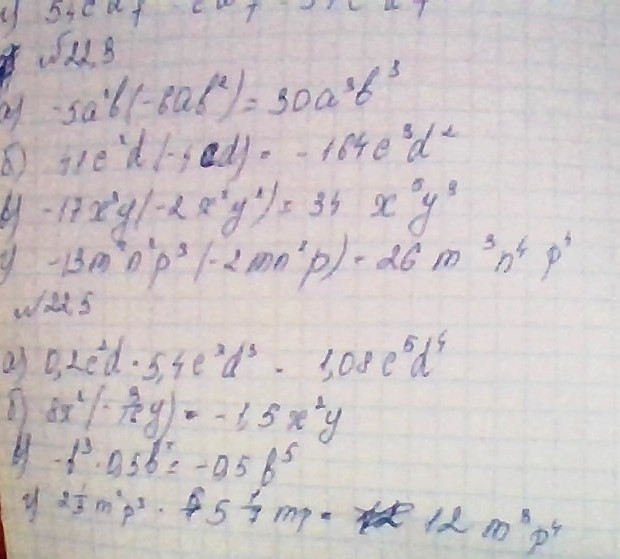 № 22.3
а) -5a²b(-6ab²) = 30a³b³
б) 41c²d(-4cd) = -164c³d²
в) -17x³y(-2x²y²) = 34 x⁵y³
г) -13m²n²p³(-2mn²p) = 26 m³n⁴p⁴
№ 22.5
а) 0,2c²d · 5,4c³d³ = 1,08c⁵d⁴
б) 8x²(-3/16 y) = -1,5x²y
в) -b³ · 0,5b² = -0,5b⁵
г) 2 1/3 m²p³ · 5 1/7 mp = 12 m³p⁴